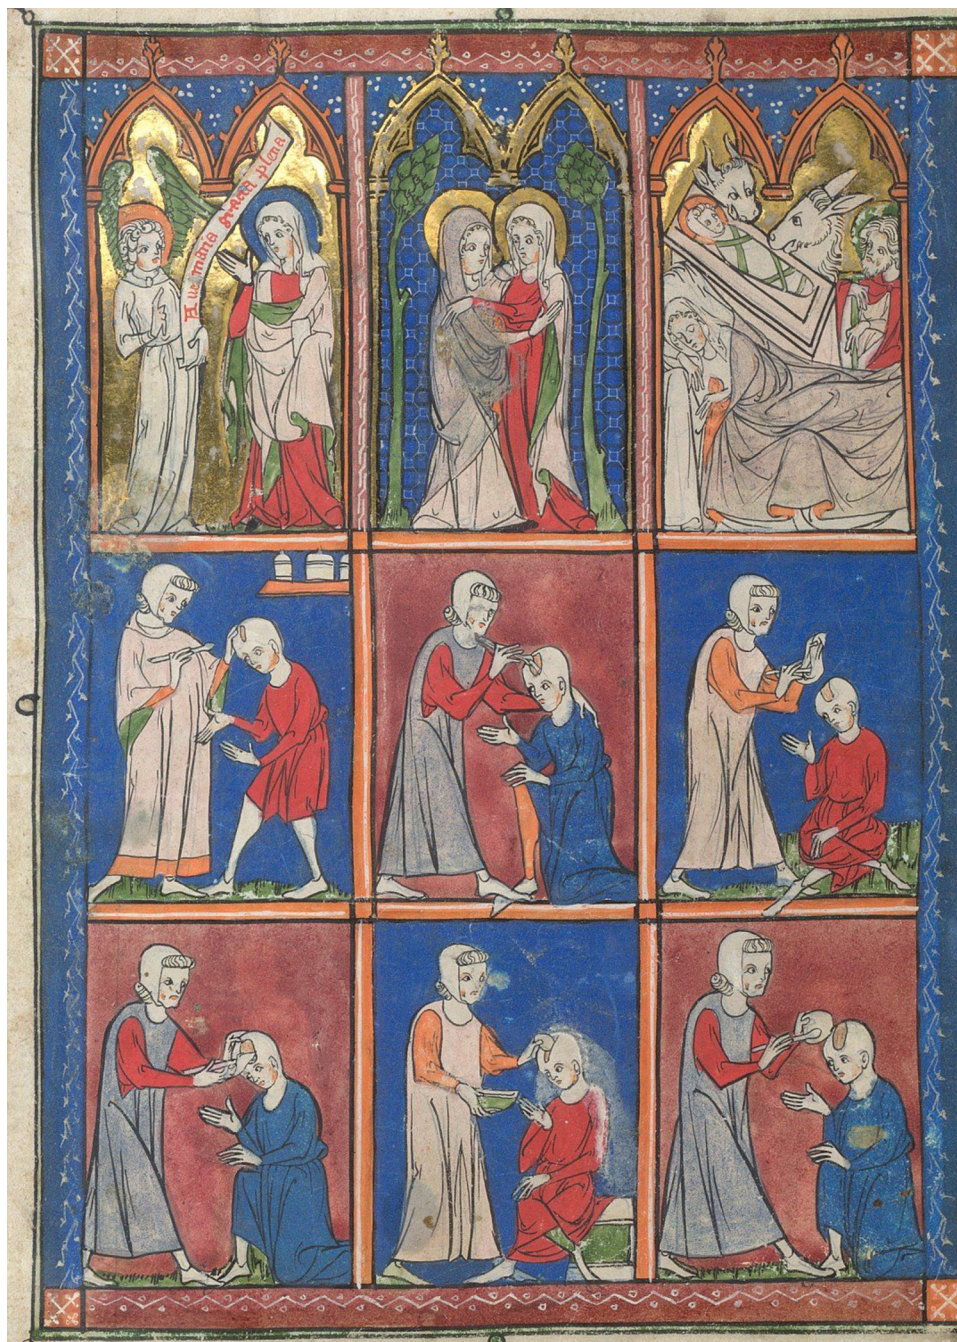 Aue maria gracia plena